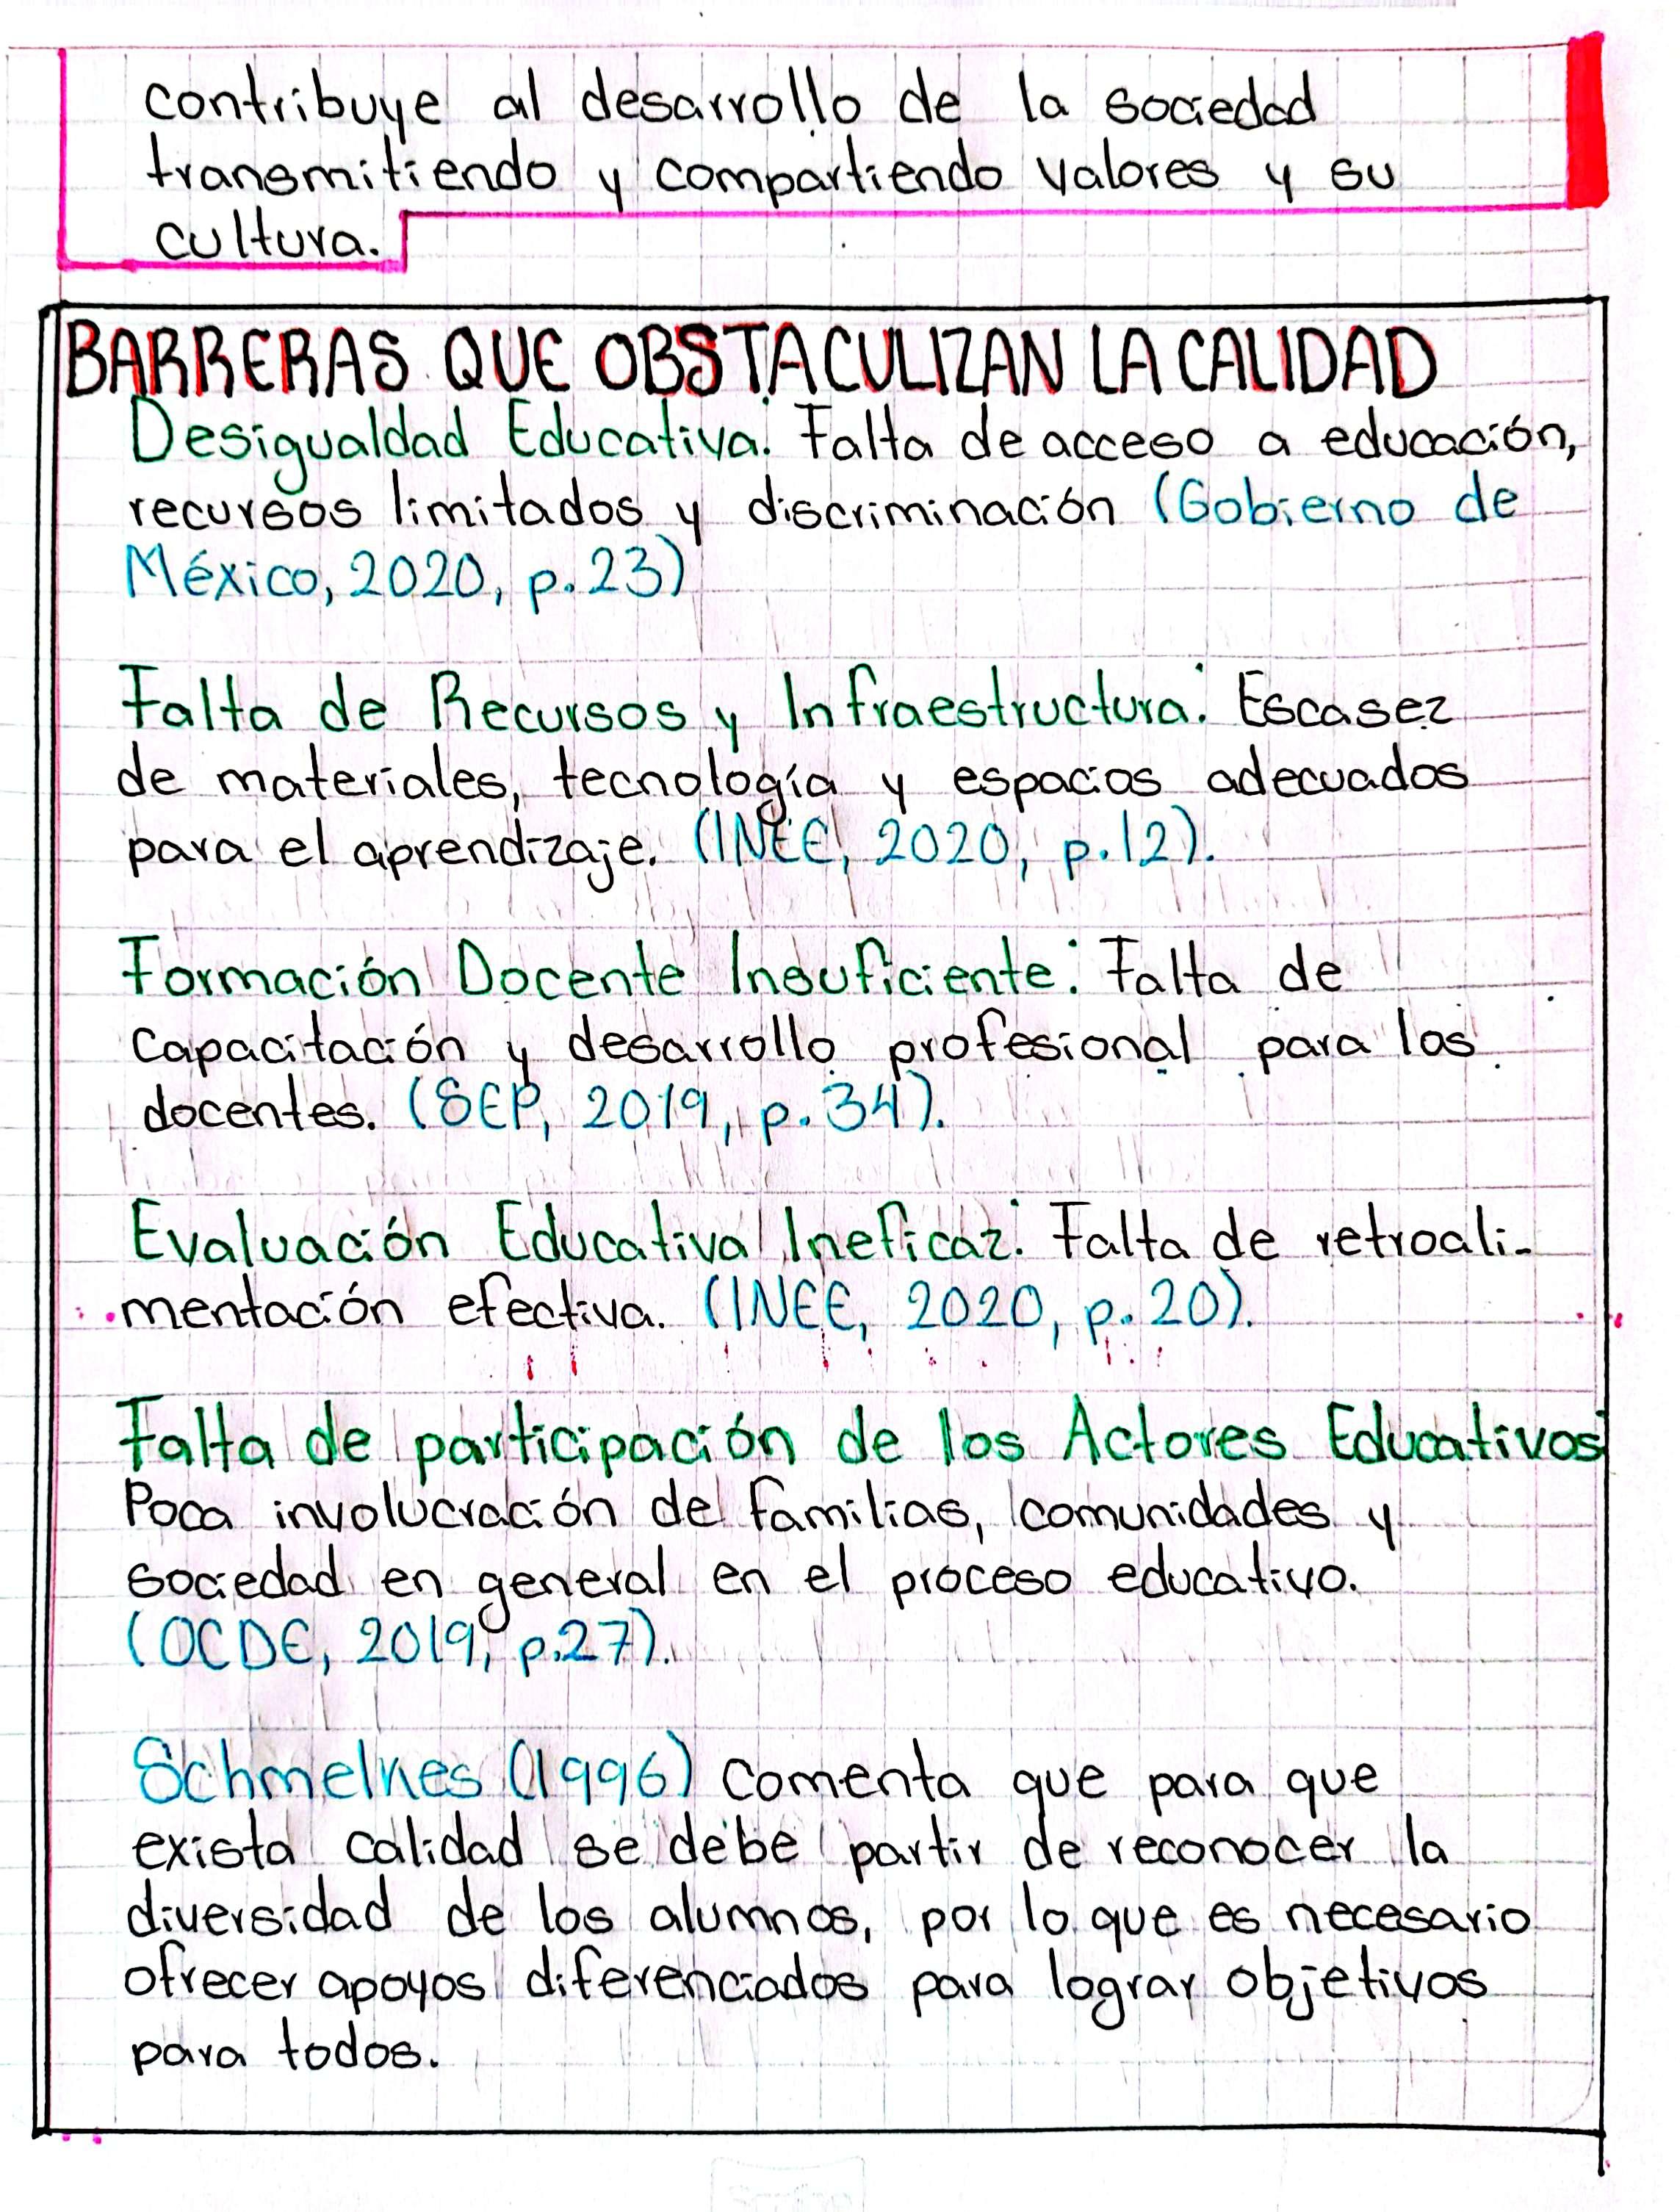 contribuye al desarrollo de la sociedad
transmitiendo y compartiendo valores y su
cultura.
BARRERAS QUE OBSTACULIZAN LA CALIDAD
Desigualdad Educativa: Falta de acceso a educación,
recursos limitados y discriminación (Gobierno de
México, 2020, p.23)
Falta de Recursos y Infraestructura: Escasez
de materiales, tecnología y espacios adecuados
para el aprendizaje. (INEE, 2020, p.12).
Formación Docente Insuficiente: Falta de
capacitación y desarrollo profesional para los
docentes. (SEP, 2019, p.34).
Evaluación Educativa Ineficaz: Falta de retroali-
mentación efectiva. (INEE, 2020, p.20).
Falta de participación de los Actores Educativos:
Poca involucración de familias, comunidades y
sociedad en general en el proceso educativo.
(OCDE, 2019, p.27).
Schmelkes (1996) comenta que para que
exista calidad se debe partir de reconocer la
diversidad de los alumnos, por lo que es necesario
ofrecer apoyos diferenciados para lograr objetivos
para todos.